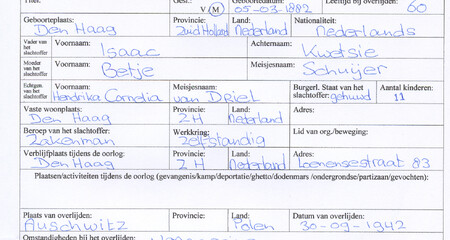 Titel: Gesl.: Geboortedatum: Leeftijd bij overlijden:
V M 05-03-1882 60
Geboorteplaats: Provincie: Land: Nationaliteit:
Den Haag Zuid Holland Nederland Nederlands
Vader van het slachtoffer Voornaam: Achternaam:
Isaac Kwetsie
Moeder van het slachtoffer Voornaam: Meisjesnaam:
Betje Schuijer
Echtgen. van het slachtoffer Voornaam: Meisjesnaam: Burgerl. Staat van het slachtoffer: Aantal kinderen:
Hendrika Cornelia van Driel gehuwd 11
Vaste woonplaats: Provincie: Land: Adres:
Den Haag ZH Nederland
Beroep van het slachtoffer: Werkkring: Lid van org./beweging:
Zakenman zelfstandig
Verblijfplaats tijdens de oorlog: Provincie: Land: Adres:
Den Haag ZH Nederland Loenensestraat 83
Plaatsen/activiteiten tijdens de oorlog (gevangenis/kamp/deportatie/ghetto/dodenmars /ondergrondse/partizaan/gevochten):
Plaats van overlijden: Provincie: Land: Datum van overlijden:
Auschwitz Polen 30-09-1942
Omstandigheden bij het overlijden